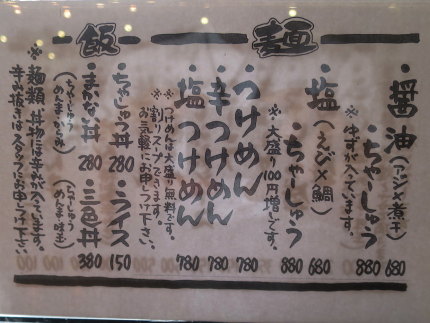 麺
醤油(アジ×煮干) 680
・ちゃーしゅう 880
※ゆずが入っています。
・塩(えび×鯛) 680
・ちゃーしゅう 880
※大盛り100円増しです。
つけめん 780
辛つけめん 780
塩つけめん 780
つけめんは大盛り無料です。
※割りスープできます。
お気軽にお申し下さい。
飯
・ちゃしゅう丼 280
・ライス 150
・まかない丼 280
・三色丼 380
(ちゃーしゅうめんま・味玉)
※麺類、丼物には辛みが入っています。
辛み抜きはスタッフにお申し下さい。